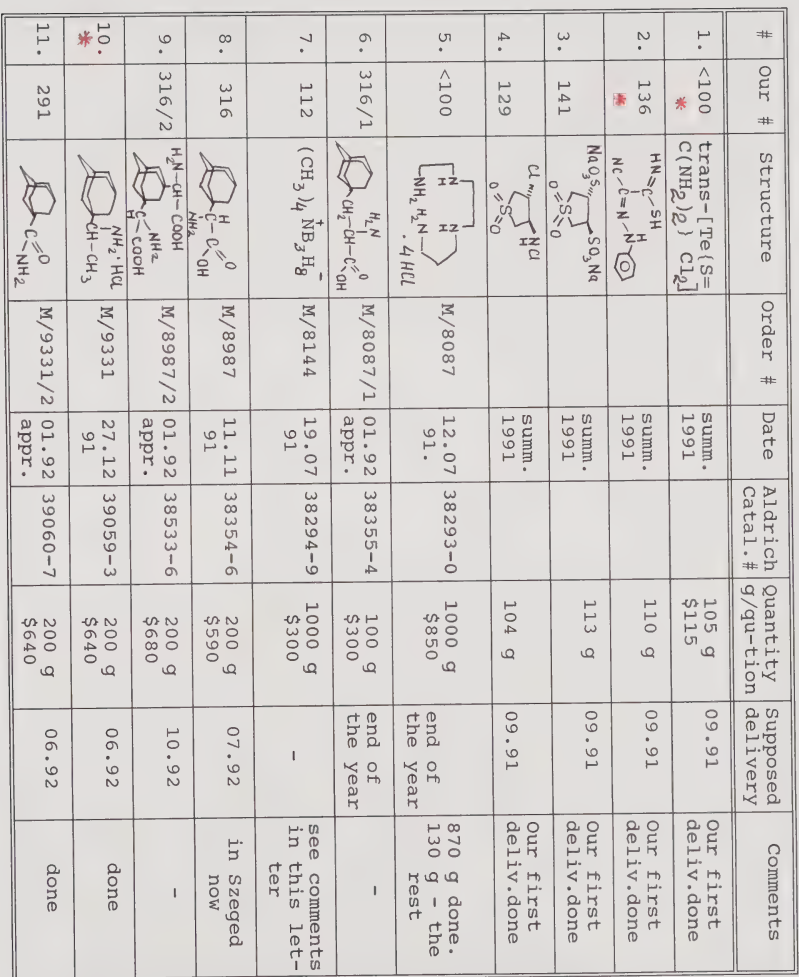 # Our # Structure Order # Date Aldrich Catal.# Quantity g/qu-tion Supposed delivery Comments
1. <100 * trans-[Te{S= C(NH2)2} Cl2] summ. 1991 105 g $115 09.91 Our first deliv.done
2. 136 * HN=C-SH NC-C=N-N H summ. 1991 110 g 09.91 Our first deliv.done
3. 141 NaO3S SO3Na S O O summ. 1991 113 g 09.91 Our first deliv.done
4. 129 Cl NCl H S O O summ. 1991 104 g 09.91 Our first deliv.done
5. <100 N H N H NH2 H2N .4HCl M/8087 12.07 91. 38293-0 1000 g $850 end of the year 870 g done. 130 g - the rest
6. 316/1 H2N CH2-CH-C=O OH M/8087/1 01.92 appr. 38355-4 100 g $300 end of the year -
7. 112 (CH3)4 N+B3H8- M/8144 19.07 91 38294-9 1000 g $300 - see comments in this let- ter
8. 316 H C-C=O NH2 OH M/8987 11.11 91 38354-6 200 g $590 07.92 in Szeged now
9. 316/2 H2N-CH-COOH NH2 C-COOH H M/8987/2 01.92 appr. 38533-6 200 g $680 10.92 -
10. * NH2·HCl CH-CH3 M/9331 27.12 91 39059-3 200 g $640 06.92 done
11. 291 C=O NH2 M/9331/2 01.92 appr. 39060-7 200 g $640 06.92 done